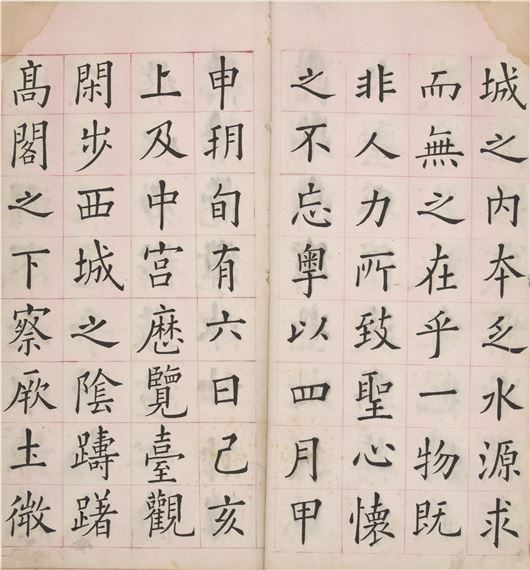 城之内本乏水源求
而無之在乎一物既
非人力所致聖心懷
之不忘粵以四月甲
申朔旬有六日己亥
上及中宮歷覽臺觀
閑步西城之陰躊躇
髙閣之下察厥土微